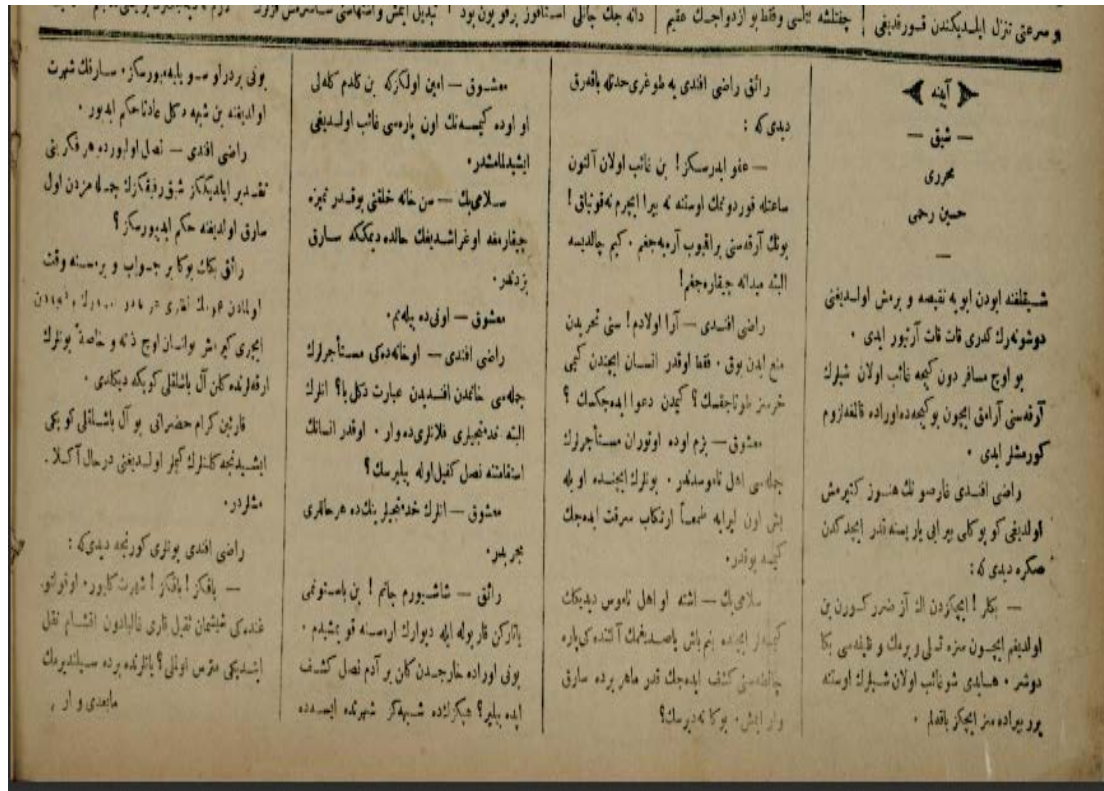 و سرعتی تنزل ایلدیکندن قورقدیغی
چفتلشه وفقط بو ازدواجك عقیم
دانه جك جانلی
تبدیل ایتمش واشتهاسی
آینه
— شیق —
محرری
حسین رحمی
—
شیقلغنه ابودن ابویه نقیصه ویرمش اولدیغنی
دوشونه‌رك کدری قات قات آرتیور ایدی .
بو اوچ مسافر دون کیجه غائب اولان شیلرك
آرقه‌سنی آرامق ایچون بو کیجه‌ده اوراده قالمغه لزوم
کورمشلر ایدی .
راضی افندی غارصونك هنوز کتیرمش
اولدیغی کوپوکلی بیرایی یاریسنه قدر ایچدکدن
صکره دیدی که :
— بکلر ! ایچکزدن اك آز ضرر کورن بن
اولدیغم ایچون سزه تسلی ویرمك وظیفه‌سی بکا
دوشر . هایدی شو غائب اولان شیلرك اوستنه
برر بیراده سز ایچکز باقهلم .
رائق راضی افندی یه طوغری حدتله باقه‌رق
دیدی که :
— عفو ایدرسکز ! بن غائب اولان آلتون
ساعتله قوردونمك اوستنه نه بیرا ایچرم نه قونیاق !
بونك آرقه‌سنی براقیوب آرایه‌جغم . کیم چالدیسه
البته میدانه چیقاره‌جغم !
راضی افندی — آرا اولادم ! سنی تحریدن
منع ایدن یوق . فقط اوقدر انسان ایچندن کیمی
خرسز طوتاجقسك ؟ کیمدن دعوا ایده‌جکسك ؟
معشوق — بزم اوده اوتوران مستأجرلرك
جمله‌سی اهل ناموسدندر . بونلرك ایچنده اویله
بش اون لیرایه طمعاً ارتکاب سرقت ایده‌جك
کیمسه یوقدر .
سلامی بك — اشته او اهل ناموس دیدیکك
کیمسه‌لر ایچنده بنم باش یاصدیغمك آلتنده‌کی پاره
چانطه‌سنی کشف ایده‌جك قدر ماهر برده سارق
وار ایمش . بوکا نه دیرسك ؟
معشوق — امین اولكز که بن کلدم کله‌لی
او اوده کیمسه‌نك اون پاره‌سی غائب اولدیغی
ایشیدلمامشدر .
سلامی بك — سن خانه خلقنی بوقدر تمیزه
چیقارمغه اوغراشدیغك حالده دیمك که سارق
بزدندر .
معشوق — اونی ده بیله‌مم .
راضی افندی — او خانه‌ده‌کی مستأجرلرك
جمله‌سی خانمدن افندیدن عبارت دکل یا ؟ انلرك
البته خدمتجیلری فلانلری ده وار . اوقدر انسانك
استقامتنه نصل کفیل اوله بیلیرسك ؟
معشوق — انلرك خدمتجیلرینك ده هر حاللری
مجربدر .
رائق — شاشیورم جانم ! بن باستونمی
یاتارکن قاریوله ایله دیوارك اره‌سنه قویمشیدم .
بونی اوراده خارجدن کلن بر آدم نصل کشف
ایده بیلیر ؟ هیکزكده شبهه‌کز شهرتده ایسه‌ده
بونی بردرلو سویلیه‌میورسکز . سارقك شهرت
اولدیغنه بن شبهه دکل عادتا حکم ایدیورم .
راضی افندی — نصل اولیورده هر فکرینی
تقدیر ایلدیککز شیق رفیقکزك جمله مزدن اول
سارق اولدیغنه حکم ایدیورسکز ؟
رائق بكك بوکا بر جواب ویرمسنه وقت
اولمادن
ایچری کیرمش بولنان اوچ ذاته و خاصةً بونلرك
ارقه‌لرنده کلن آل یاشماقلی کوپکه دیکلدی .
قارئین کرام حضراتی بو آل یاشماقلی کوپکی
ایشیدنجه کلنلرك کیملر اولدیغنی درحال آکلا .
مشلردر .
راضی افندی بونلری کورنجه دیدی که :
— باقکز ! باقکز ! شهرت کلیور . اوقولتو
غنده‌کی شیشمان ثقیل قاری غالبا دون اقشام نقل
ایتدیکی مترس اولملی ؟ یانلرنده برده سیلندیرمك
مابعدی وار